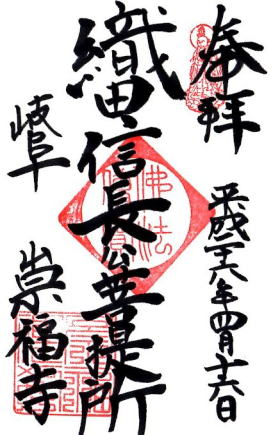 奉拝
平成二十六年四月十六日
織田信長公菩提所
岐阜 崇福寺
佛法